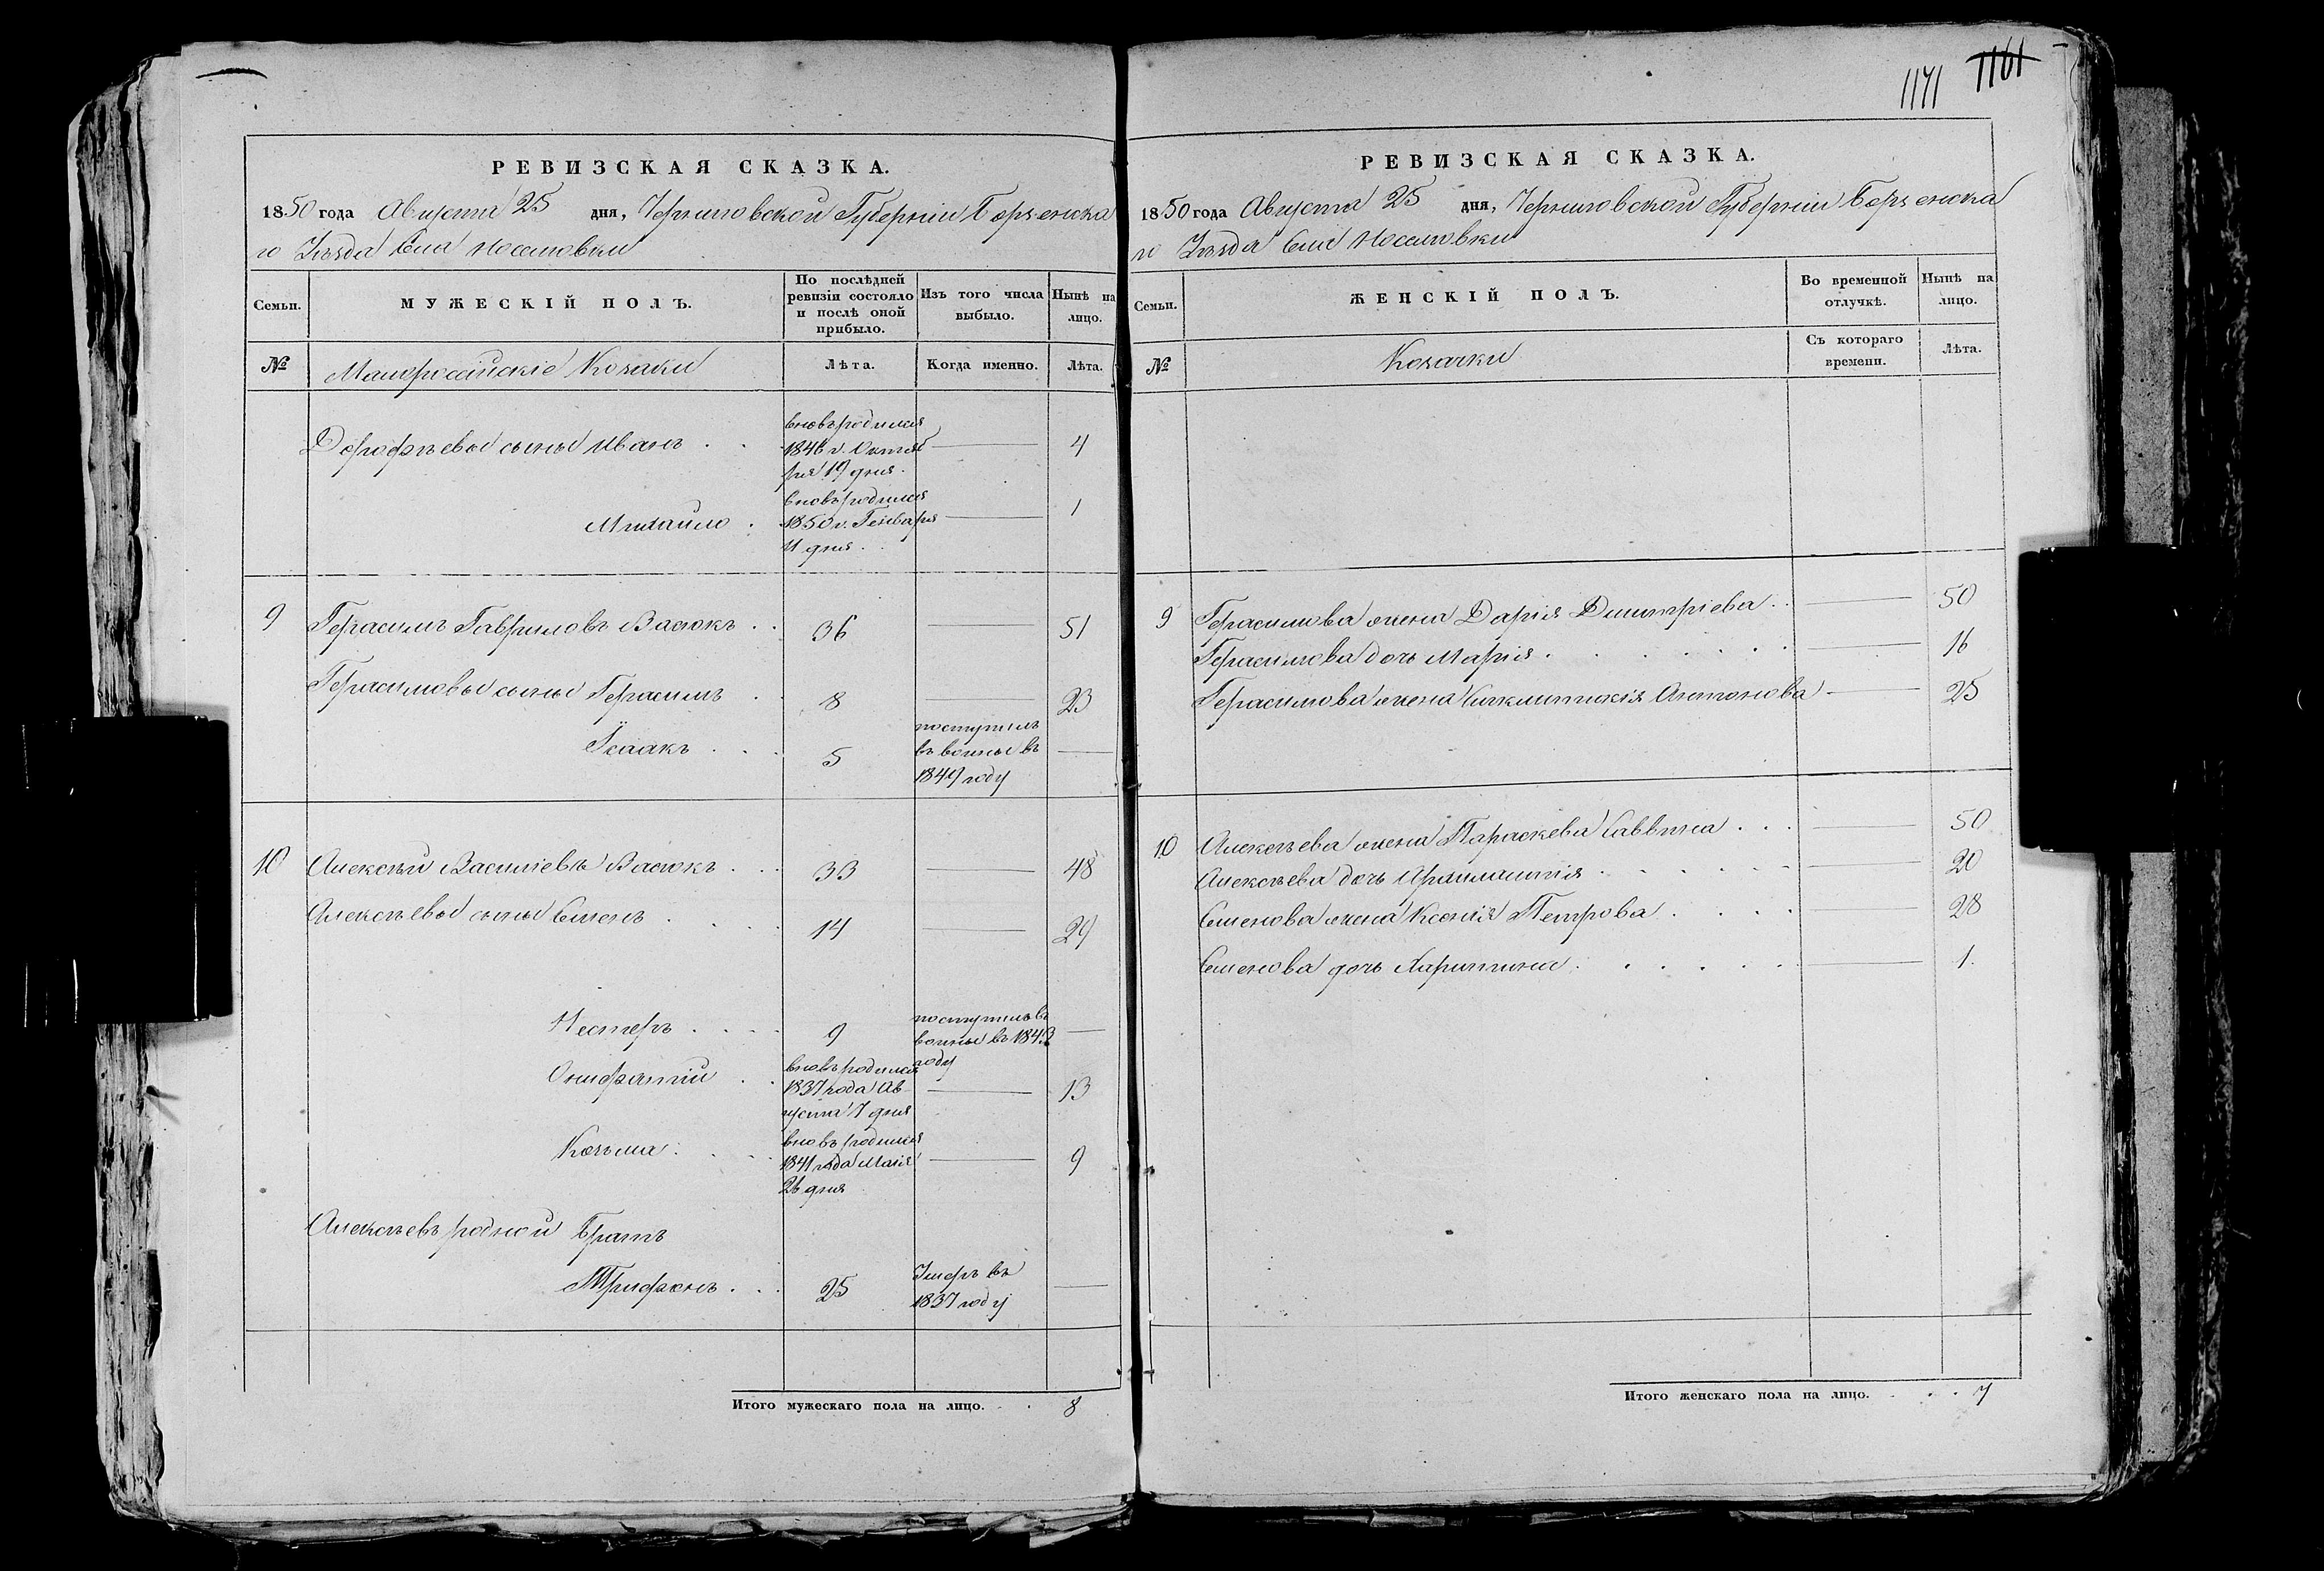 РЕВИЗСКАЯ СКАЗКА.
1850 года Августа 25 дня, Черниговской Губерніи Борзенска
го Уѣзда Села Носеловки
Семьи. МУЖЕСКІЙ ПОЛЪ. По послѣдней ревизіи состояло и послѣ оной прибыло. Изъ того числа выбыло. Нынѣ на лицо.
№ Малороссійскіе Козаки Лѣта. Когда именно. Лѣта.
Дорофѣевы сыны Иванъ . . вновь родился 4
1846 г. Октяб
ря 19 дня.
Михайло . вновь родился 1
1850 г. Генваря
11 дня . .
9 Герасимъ Гавриловъ Васюкъ . . 36 51
Герасимовы сыны Герасимъ . . 8 23
Ісаакъ . . . 5 поступилъ
въ воины въ
1849 году
10 Алексѣй Василіевъ Васюкъ . . . 33 48
Алексѣевы сыны Семенъ . . . . 14 29
Несторъ . . . . 9 поступилъ въ
воины въ 1843
году
Онифатій . . вновь родился 13
1837 года Ав
густа 7 дня
Козьма . . . . вновь родился 9
1841 года Маія
26 дня
Алексѣевъ родной братъ
Трифонъ . . . 25 Умеръ въ
1837 году
Итого мужескаго пола на лицо. . . 8
1171 1161
РЕВИЗСКАЯ СКАЗКА.
1850 года Августа 25 дня, Черниговской Губерніи Борзенска
го Уѣзда Села Носеловки
Семьи. ЖЕНСКІЙ ПОЛЪ. Во временной отлучкѣ. Нынѣ на лицо.
№ Козачки Съ котораго времени. Лѣта.
9 Герасимова жена Дарія Димитріева . . 50
Герасимова дочь Марія . . . . . . . 16
Герасимова жена Антонова 25
10 Алексѣева жена Параскева Саввина . . . 50
Алексѣева дочь . . . . . 20
Семенова жена Ксенія Петрова . . . . 28
Семенова дочь Харитина . . . . . . 1.
Итого женскаго пола на лицо. . . . 7